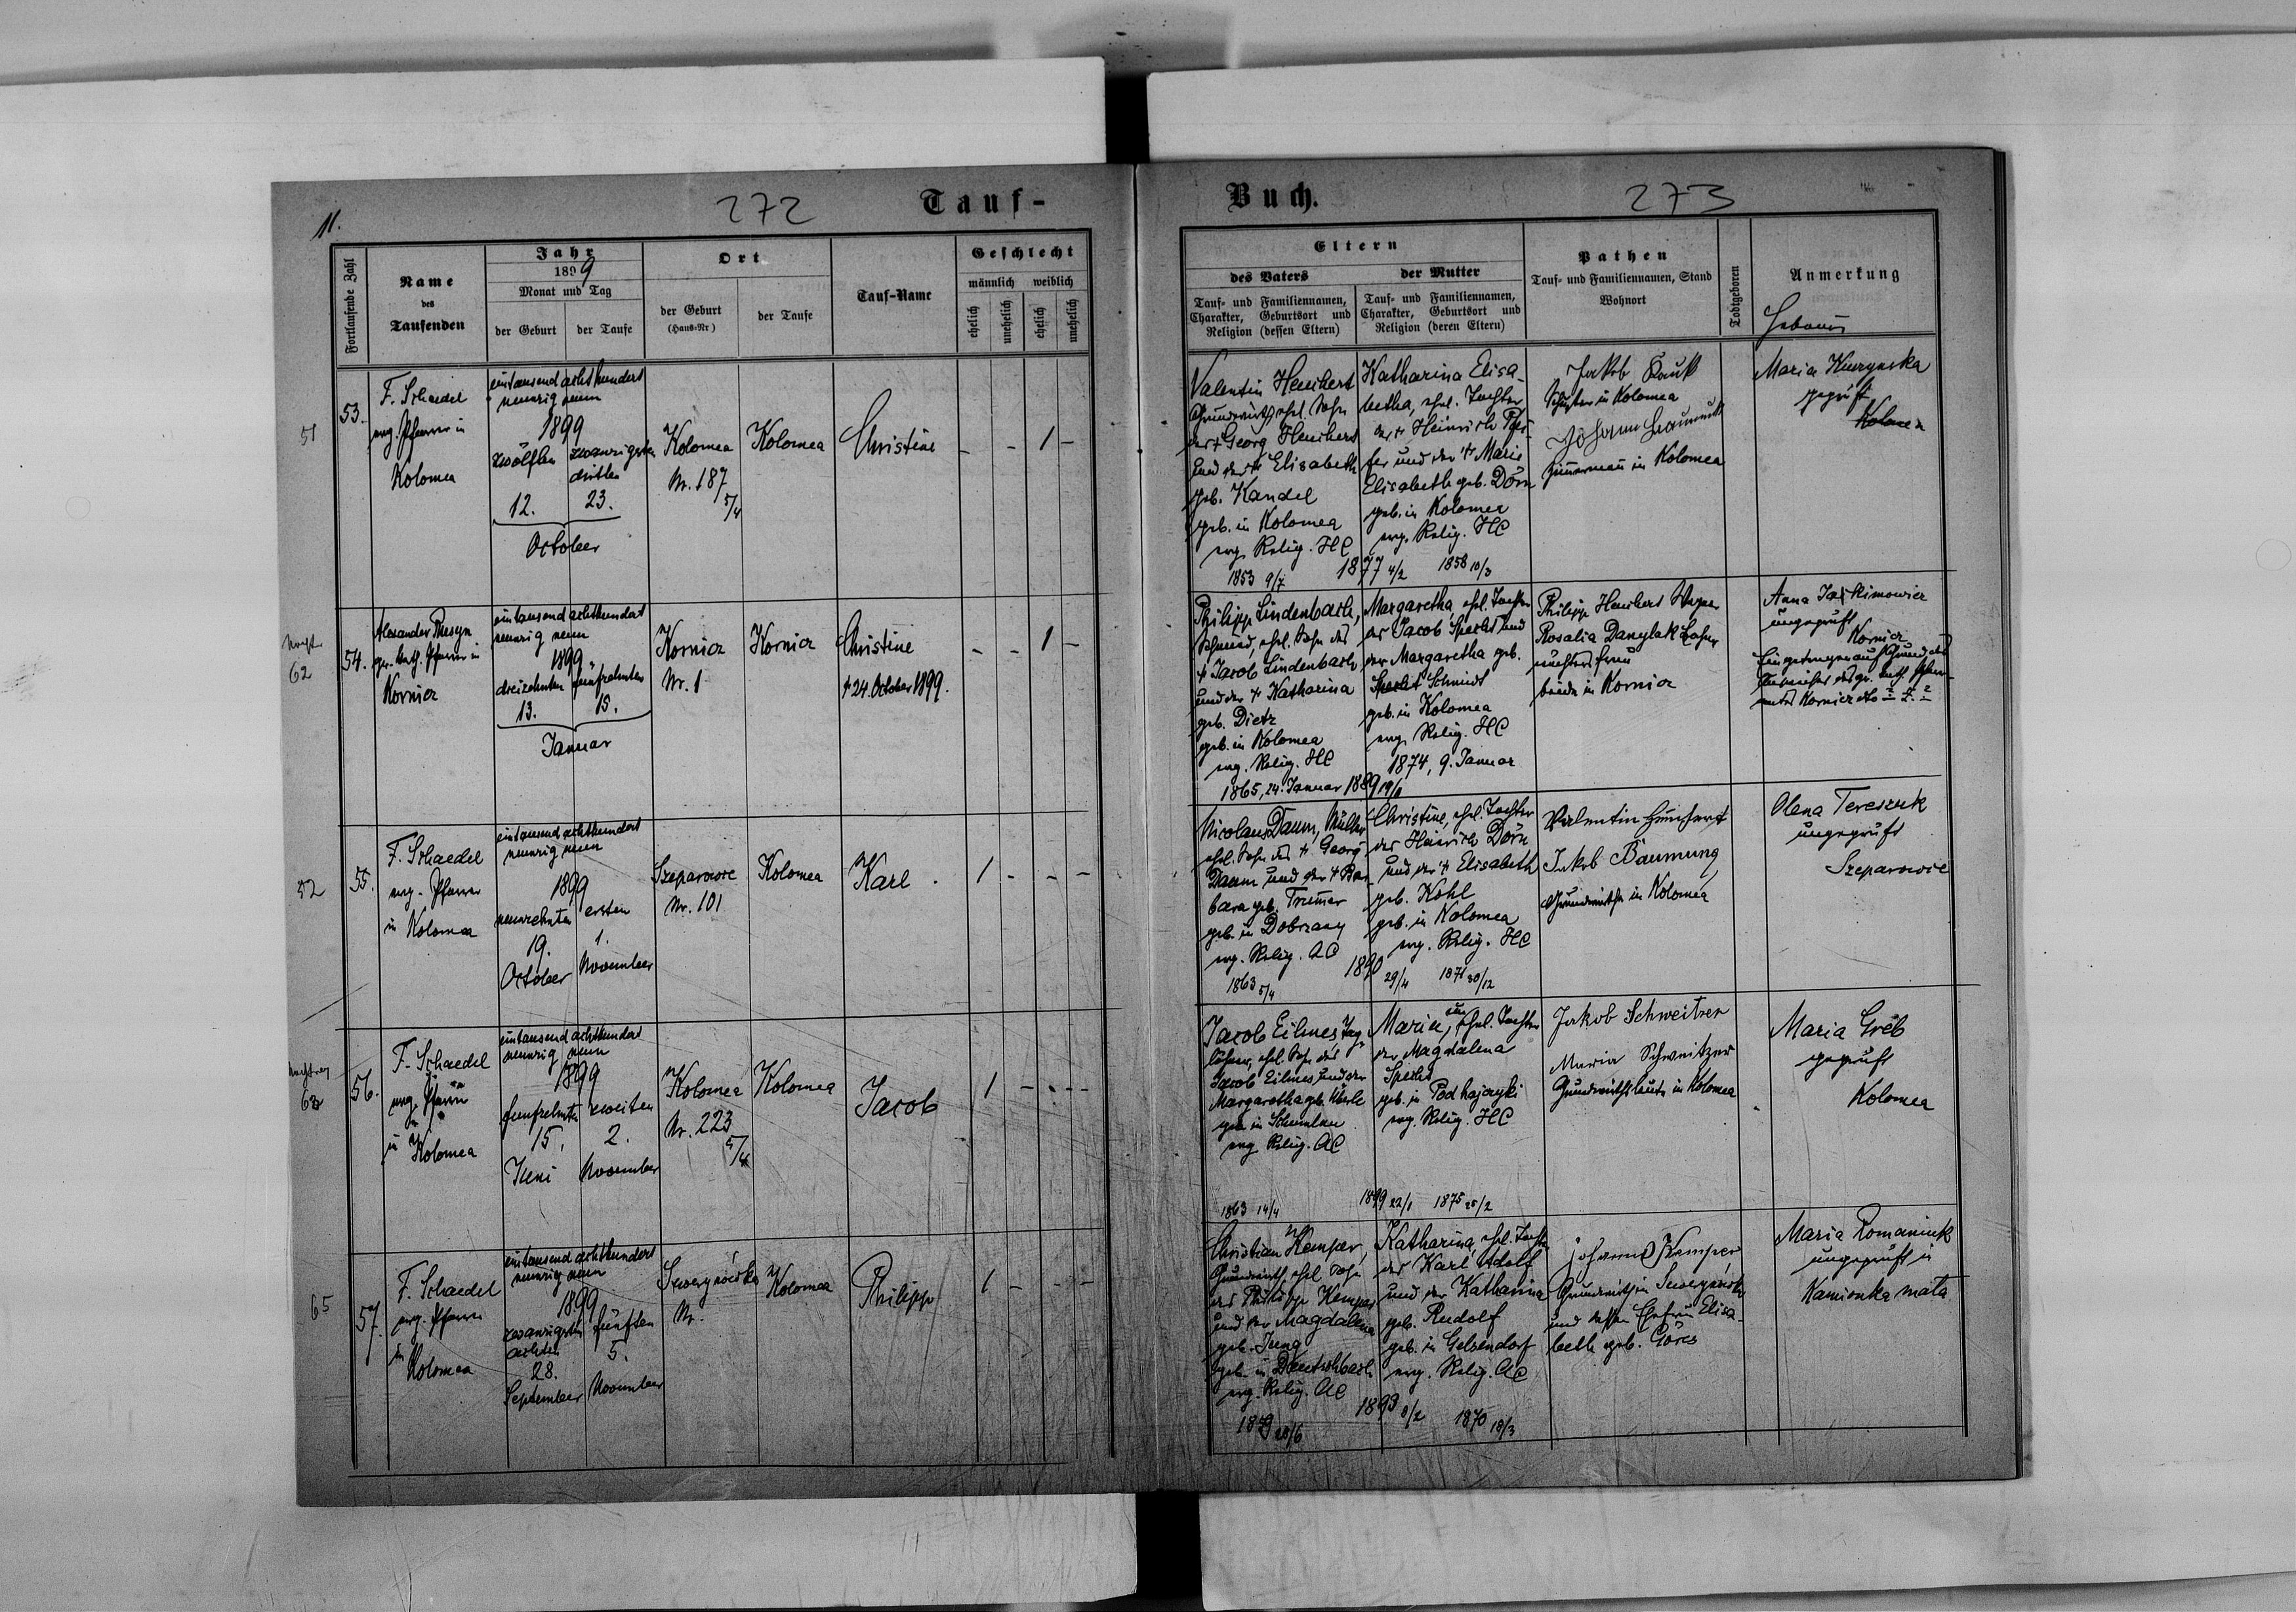 11.
272
Tauf-
Fortlaufende Zahl
Name
des
Taufenden
Jahr
1899
Monat und Tag
der Geburt
der Taufe
Ort
der Geburt
(Haus-Nr)
der Taufe
Tauf-Name
Geschlecht
männlich
weiblich
ehelich
unehelich
ehelich
unehelich
51
53.
F. Schaedel
evg. Pfarrer in
Kolomea
eintausend achthundert
neunzig neun
1899
zwölften
zwanzigsten
dritten
12.
23.
October
Kolomea
Nr. 187
5/4
Kolomea
Christine
- - 1 -
62
54.
Alexander
gr. kath. Pfarrer in
Kornicz
eintausend achthundert
neunzig neun
1899
dreizehnten
fünfzehnten
13.
15.
Januar
Kornicz
Nr. 1
Kornicz
Christine
† 24. October 1899.
- - 1 -
52
55.
F. Schaedel
evg. Pfarrer
in Kolomea
eintausend achthundert
neunzig neun
1899
neunzehnten
ersten
19.
1.
October
November
Szeparowce
Nr. 101
Kolomea
Karl
1 - - -
56.
F. Schaedel
evg. Pfarrer
in Kolomea
eintausend achthundert
neunzig neun
1899
fünfzehnten
zweiten
15.
2.
Juni
November
Kolomea
Nr. 223
5/4
Kolomea
Jacob
1 - - -
65
57.
F. Schaedel
evg. Pfarrer
in
Kolomea
eintausend achthundert
neunzig neun
1899
zwanzigsten
achten
fünften
28.
5.
September
November
Nr.
Kolomea
Philipp
1 - - -
Buch.
273
Eltern
des Vaters
der Mutter
Tauf- und Familiennamen,
Charakter, Geburtsort und
Religion (dessen Eltern)
Tauf- und Familiennamen,
Charakter, Geburtsort und
Religion (deren Eltern)
Pathen
Tauf- und Familiennamen, Stand
Wohnort
Todtgeboren
Anmerkung
Valentin Heuchert
Grundwirth, ehel. Sohn
des † Georg Heuchert
und der † Elisabeth
geb. Kandel
geb. in Kolomea
evg. Relig. HC
1853 9/7
1877 4/2
Katharina Elisa-
betha, ehel. Tochter
des † Heinrich
und der † Marie
Elisabeth geb. Dörn
geb. in Kolomea
evg. Relig. HC
1858 10/3
Jakob
in Kolomea
Johann
Zimmermann in Kolomea
Maria
geprüft
Kolomea
Philipp Lindenbach,
Schmied, ehel. Sohn des
† Jacob Lindenbach
und der † Katharina
geb. Dietz
geb. in Kolomea
evg. Relig. HC
1865, 24. Januar
1889
Margaretha ehel. Tochter
des Jacob Specht und
der Margaretha geb.
Schmidt
geb. in Kolomea
evg. Relig. HC
1874, 9. Januar
Philipp Heuchert
Rosalia Danylak
beide in Kornicz
Anna
ungeprüft
Kornicz
Eingetragen auf Grund des
Nicolaus Daum, Müller
ehel. Sohn des † Georg
Daum und der † Bar-
bara geb. Trumer
geb. in Dobrzany
evg. Relig. AC
1863 5/4
1890 29/4
Christine, ehel. Tochter
des Heinrich Dörn
und der † Elisabeth
geb. Kohl
geb. in Kolomea
evg. Relig. HC
1871 30/12
Valentin Heuchert
Jakob Baumung
Grundwirthe in Kolomea
Olena Tereszuk
ungeprüft
Szeparowce
Jacob Eilmes, Tag-
löhner, ehel. Sohn des
Jacob Eilmes und der
Margaretha geb.
geb. in
evg. Relig. AC
1863 14/4
1899 22/1
Maria, un ehel. Tochter
der Magdalena
Specht
geb. in Podhajczyki
evg. Relig. HC
1875 25/2
Jakob Schweitzer
Maria Schweitzer
Grundwirthsleute in Kolomea
Maria Greb
geprüft
Kolomea
Christian Kemper,
Grundwirth, ehel. Sohn
des Philipp Kemper
und der Magdalena
geb. Jung
geb. in
evg. Relig. AC
1893 8/2
Katharina, ehel. Tochter
des Karl Adolf
und der Katharina
geb. Rudolf
geb. in Gelsendorf
evg. Relig. AC
1870 18/3
Johann Kemper
Grundwirth in
und dessen Ehefrau Elisa-
beth geb. Göres
Maria Romaniuk
ungeprüft in
Kamionka mała